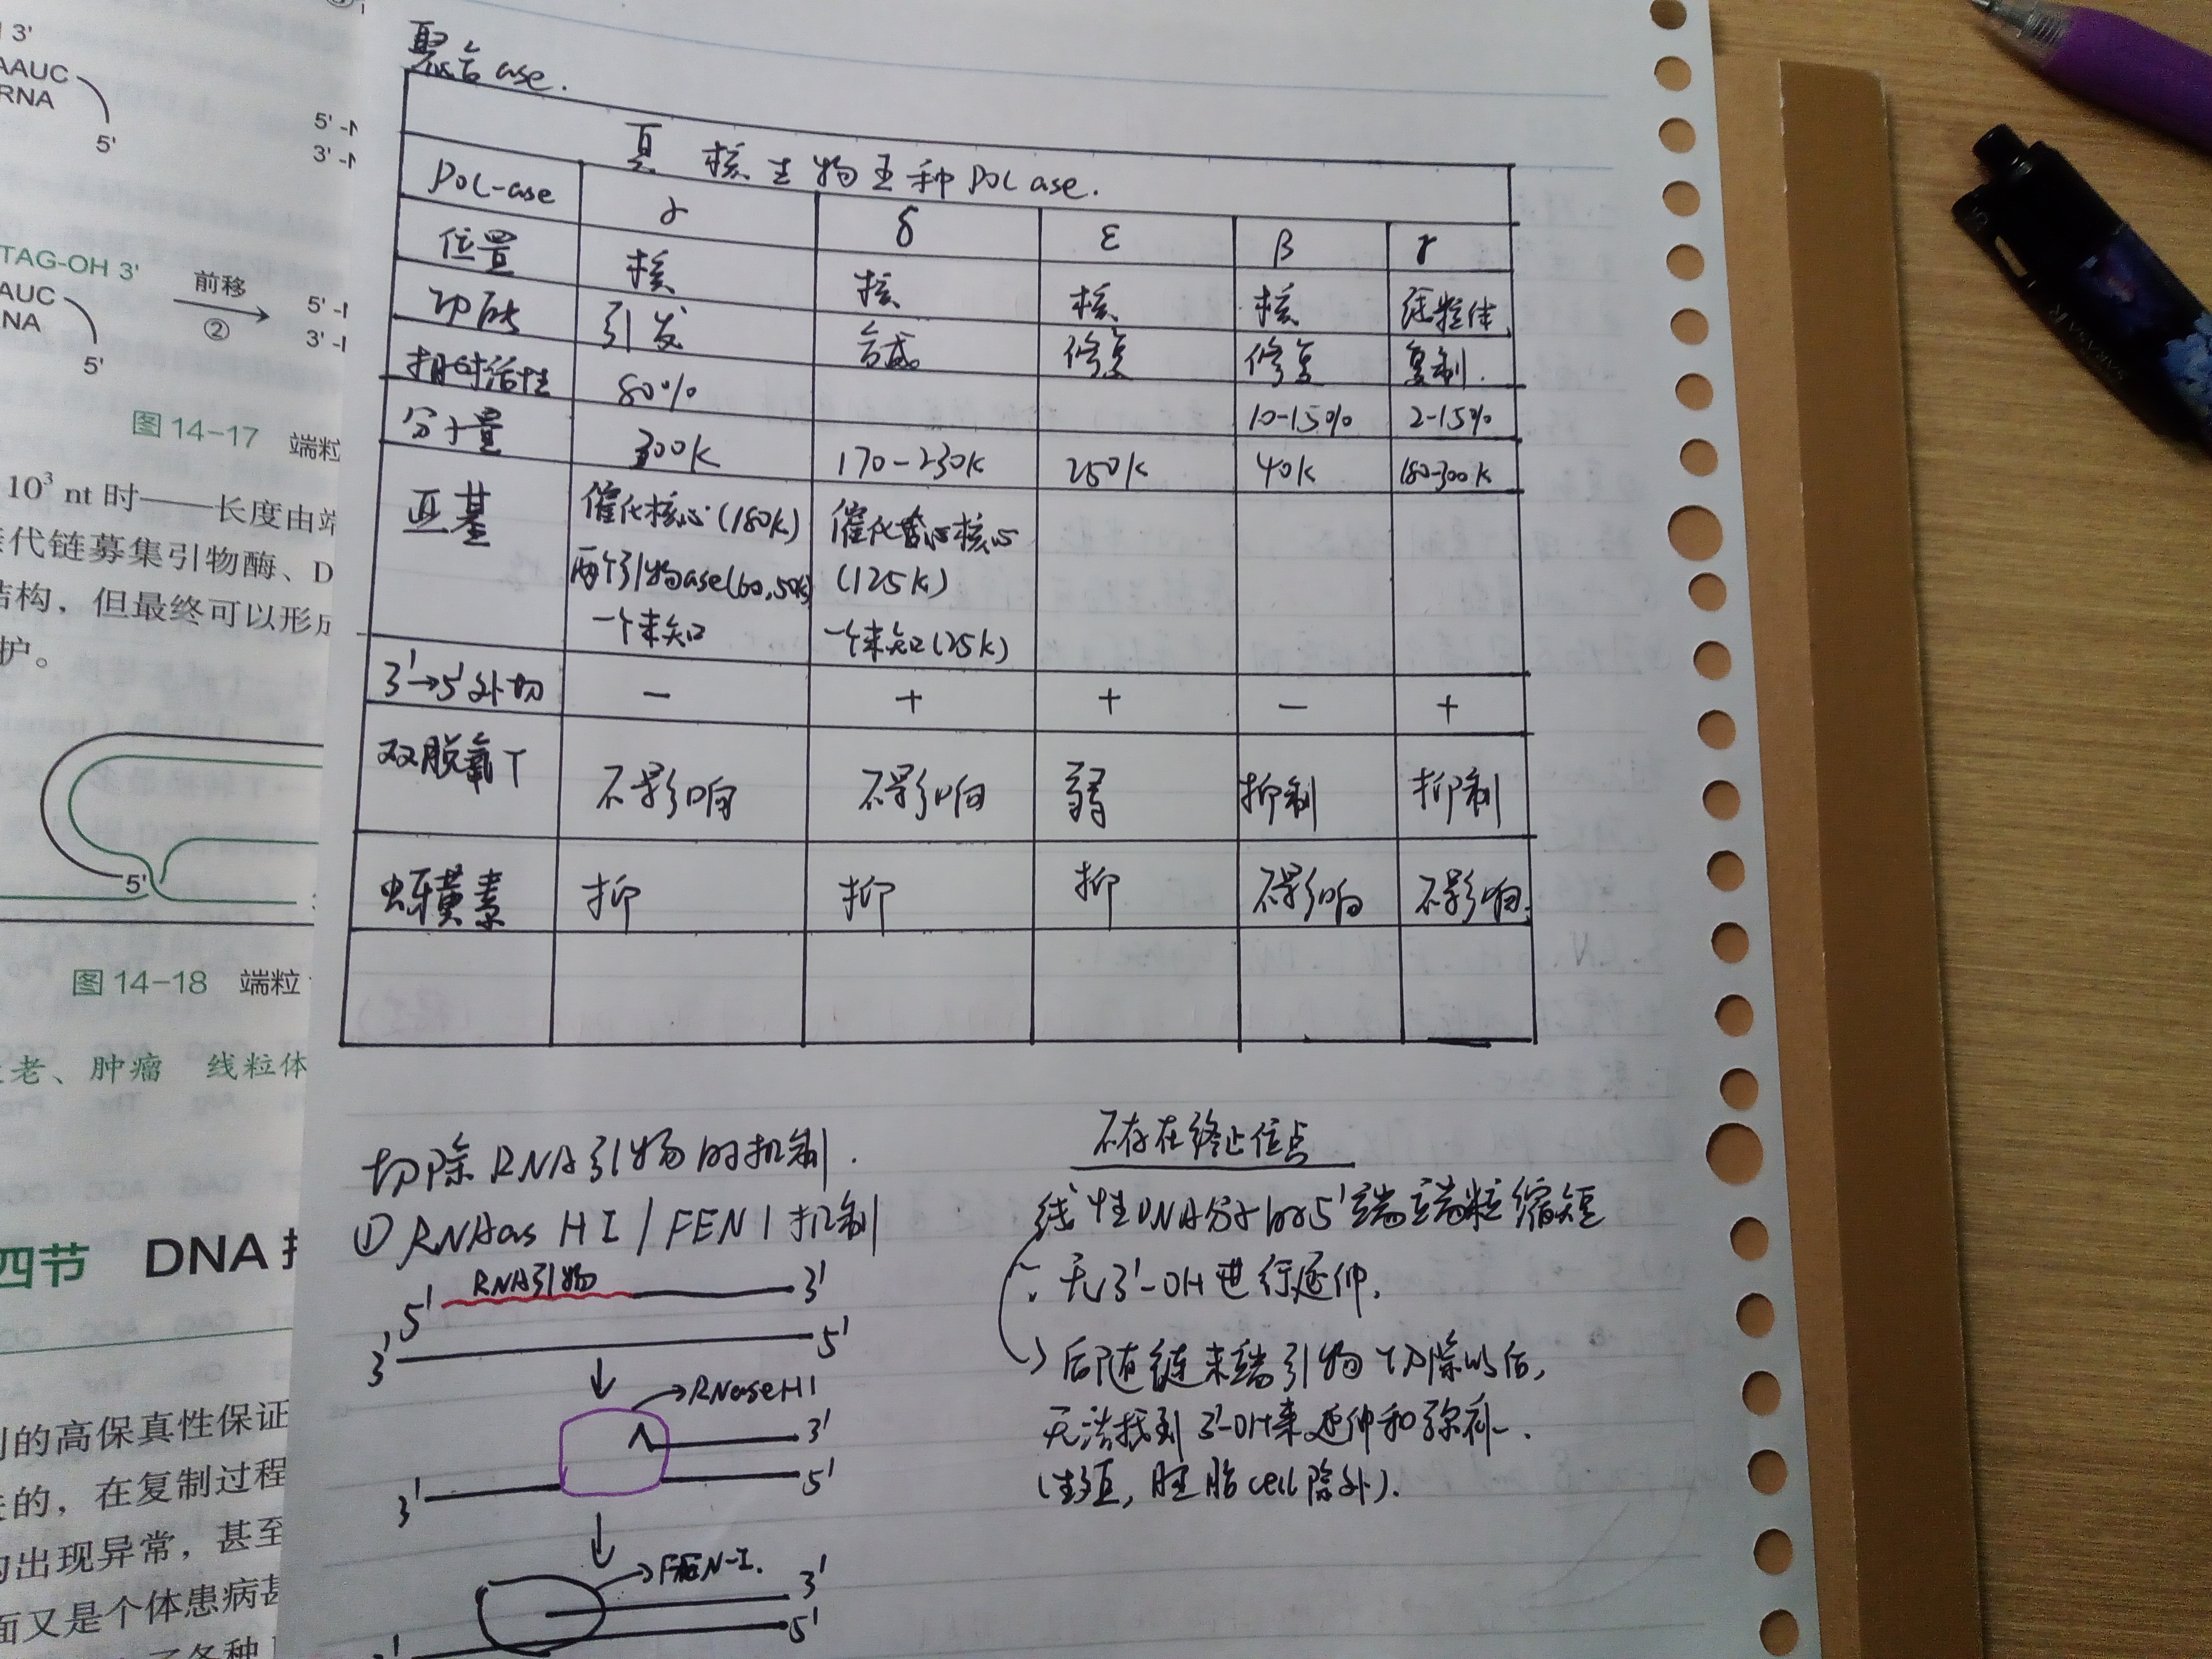 3'
AAUC
RNA
5'
5'-N
3'-N
TAG-OH 3'
AUC
NA
5'
前移
②
5'-N
3'-N
图 14-17 端粒
10³ nt 时——长度由端
代链募集引物酶、D
结构，但最终可以形成
护。
5'
图 14-18 端粒
老、肿瘤 线粒体
四节 DNA
的高保真性保证
的，在复制过程
出现异常，甚至
面又是个体患病甚
聚合ase.
真核生物五种POL ase.
POL-ase γ δ ε β γ
位置 核 核 核 核 线粒体
功能 引发 合成 修复 修复 复制.
相对活性 80% 10-15% 2-15%
分子量 300K 170-230K 250K 40K 180-300K
亚基 催化核心(180K) 催化核心
两个引物ase(60,50K) (125K)
一个未知 一个未知(25K)
3'→5'外切 - + + - +
双脱氧T 不影响 不影响 弱 抑制 抑制
蚜黄素 抑 抑 抑 不影响 不影响.
切除RNA引物的机制.
① RNAas HI / FEN1 机制
5' RNA引物 3'
3' 5'
RNaseH1
3'
3' 5'
FEN-I.
3'
5'
不存在终止位点
线性DNA分子的5'端端粒缩短
∵ 无3'-OH进行延伸.
后随链末端引物切除以后,
无法找到3'-OH来延伸和弥补.
(生殖, 胚胎cell除外).